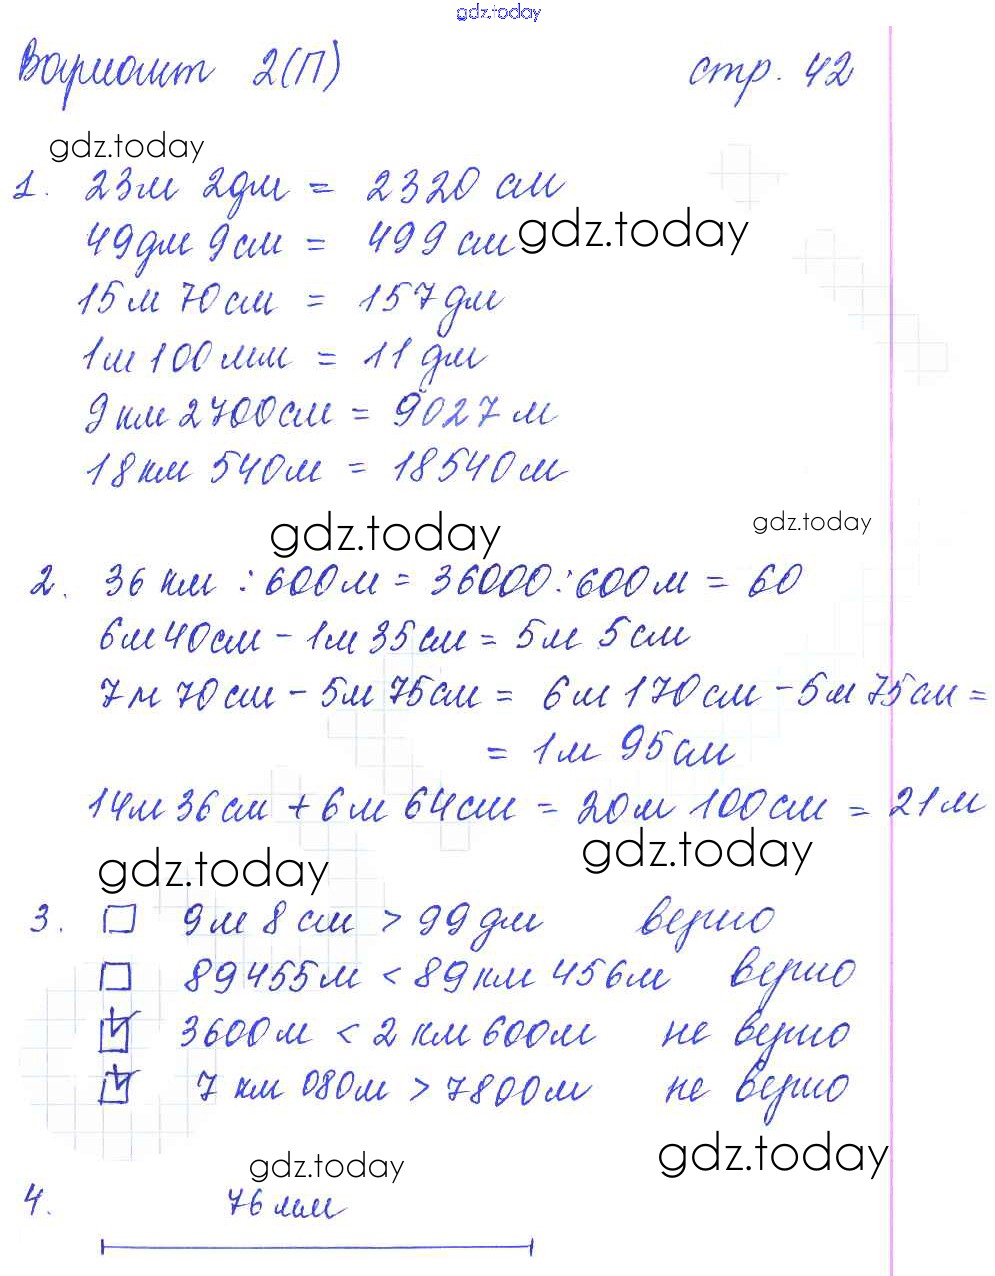 gdz.today
Вариант 2(П) стр. 42
gdz.today
1. 23м 2дм = 2320 см
49дм 9см = 499 см gdz.today
15м 70см = 157дм
1м 100мм = 11 дм
9 км 2700см = 9027 м
18км 540м = 18540м
gdz.today gdz.today
2. 36 км : 600м = 36000 : 600м = 60
6м 40см - 1м 35см = 5м 5см
7м 70см - 5м 75см = 6м 170см - 5м 75см =
= 1м 95см
14м 36см + 6м 64см = 20м 100см = 21м
gdz.today gdz.today
3. 9м 8 см > 99дм верно
89455м < 89км 456м верно
3600м < 2 км 600м не верно
7 км 080м > 7800м не верно
gdz.today gdz.today
4. 76мм